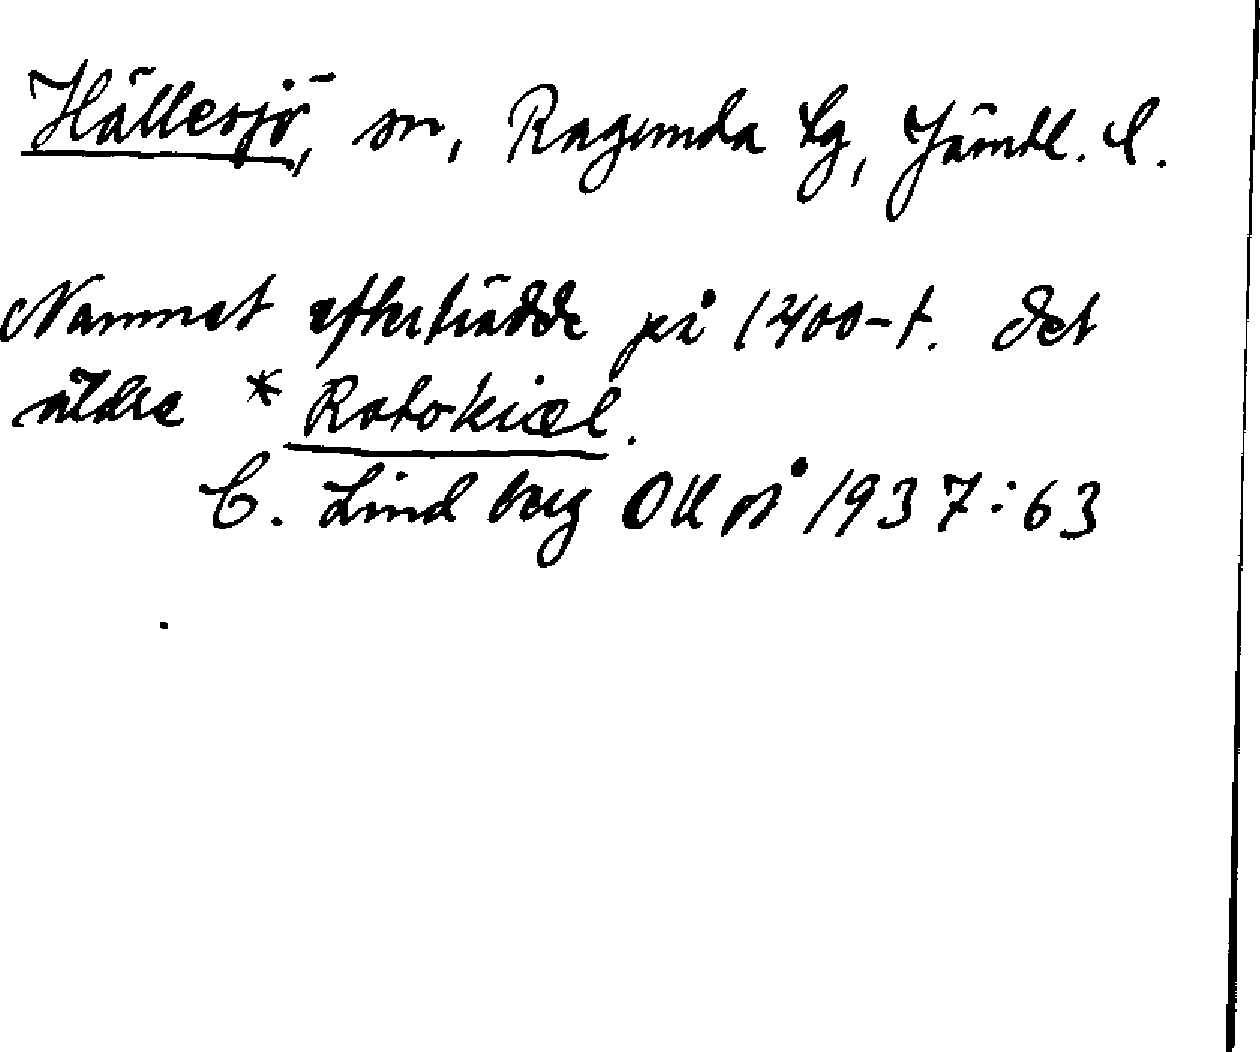 Hällesjö, sn, Ragunda tg, Jämtl. l.
Namnet efterträdde på 1400-t. det
äldre * Rotokiæl.
C. Lindberg OUÅ 1937:63